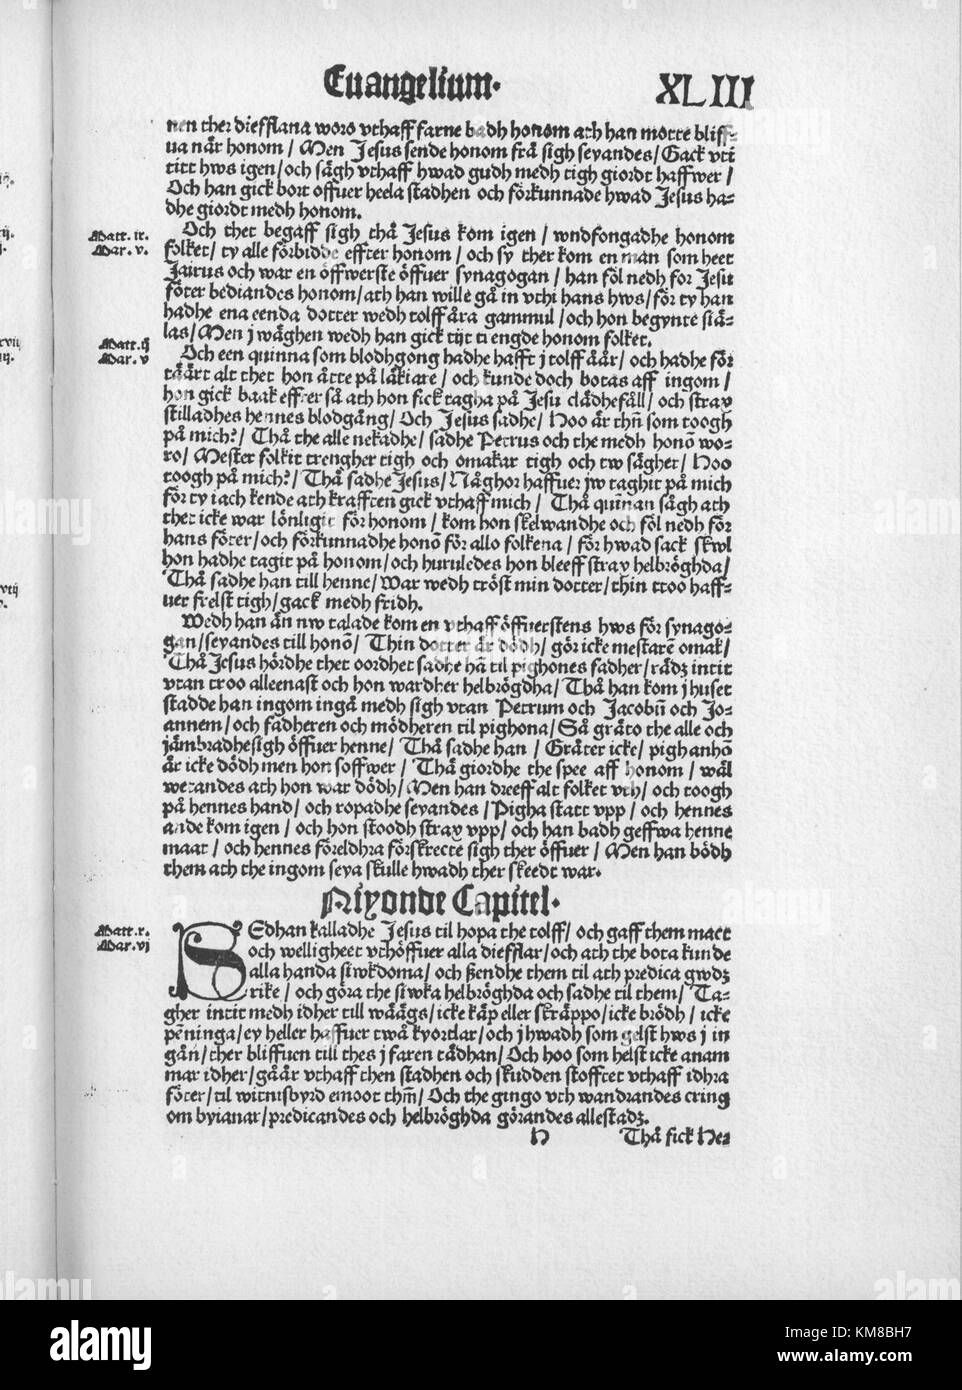 Euangelium. XLIII
nen ther diefflana woro vthaff farne badh honom ath han motte bliff-
ua när honom / Men Jesus sende honom frå sigh seyandes / Gack vti
titt hws igen / och sägh vthaff hwad gudh medh tigh giordt haffwer /
Och han gick bort offuer heela stadhen och förkunnade hwad Jesus ha-
dhe giordt medh honom.
Matt. ix.
Mar. v.
Och thet begaff sigh thå Jesus kom igen / wndfongadhe honom
folket / ty alle förbidde effter honom / och sy ther kom en man som heet
Jairus och war en öffwerste öffuer synagogan / han föl nedh for Jesu
föter bediandes honom / ath han wille gå in vthi hans hws / för ty han
hadhe ena eenda dotter wedh tolff åra gammul / och hon begynte siä-
las / Men j wäghen wedh han gick tijt trengde honom folket.
Matt. ij
Mar. v
Och een quinna som blodhgong hadhe hafft j tolff åår / och hadhe för
täärt alt thet hon åtte på läkiare / och kunde doch botas aff ingom /
hon gick baak effter så ath hon fick tagha på Jesu clädhefåll / och strax
stilladhes hennes blodgång / Och Jesus sadhe / Hoo är thñ som toogh
på mich? / Thå the alle nekadhe / sadhe Petrus och the medh honõ wo-
ro / Mester folkit trengher tigh och omakar tigh och tw sägher / Hoo
toogh på mich? / Thå sadhe Jesus / Någhor haffuer jw taghit på mich
för ty iach kende ath krafften gick vthaff mich / Thå quiñan sågh ath
thet icke war lönligit för honom / kom hon skelwandhe och föl nedh för
hans föter / och förkunnadhe honõ för allo folkena / för hwad sack skwl
hon hadhe tagit på honom / och huruledes hon bleeff strax helbrögda /
Thå sadhe han till henne / War wedh tröst min dotter / thin troo haff-
uer frelst tigh / gack medh fridh.
Wedh han än nw talade kom en vthaff öffuerstens hws för synago-
gan / seyandes till honõ / Thin dotter är dödh / gör icke mestarẽ omak /
Thå Jesus hördhe thet oordhet sadhe hã til pighones fadher / rädz intit
vtan troo alleenast och hon wardher helbrögdha / Thå han kom j huset
stadde han ingom ingå medh sigh vtan Petrum och Jacobũ och Jo-
annem / och fadheren och mödheren til pighona / Så gräto the alle och
jämbradhe sigh öffuer henne / Thå sadhe han / Gräter icke / pighan hõ
är icke dödh men hon soffwer / Thå giordhe the spee aff honom / wäl
wetandes ath hon war dödh / Men han dreeff alt folket vth / och toogh
på hennes hand / och ropadhe seyandes / Pigha statt vpp / och hennes
ande kom igen / och hon stoodh strax vpp / och han badh geffwa henne
maat / och hennes föreldhra förskrecte sigh ther öffuer / Men han bödh
them ath the ingom seya skulle hwadh ther skeedt war.
Niyonde Capitel.
Matt. x.
Mar. vj
SEdhan kalladhe Jesus til hopa the tolff / och gaff them mact
och welligheet vthöffuer alla diefflar / och ath the bota kunde
alla handa siwkdoma / och ßendhe them til ath predica gwdz
rike / och göra the siwka helbröghda och sadhe til them / Ta-
gher intit medh idher till wäägs / icke käp eller skräppo / icke brödh / icke
pẽninga / ey heller haffuer twå kyortlar / och j hwadh som gelst hws j in
gån / ther bliffuen till thes j faren tädhan / Och hoo som helst icke anam
mar idher / gåår vthaff then stadhen och skudden stofftet vthaff idhra
föter / til witnisbyrd emoot thm̃ / Och the gingo vth wandrandes cring
om byianar / predicandes och helbröghda görandes allestadz.
H Thå fick He-
alamy
KM8BH7
www.alamy.com